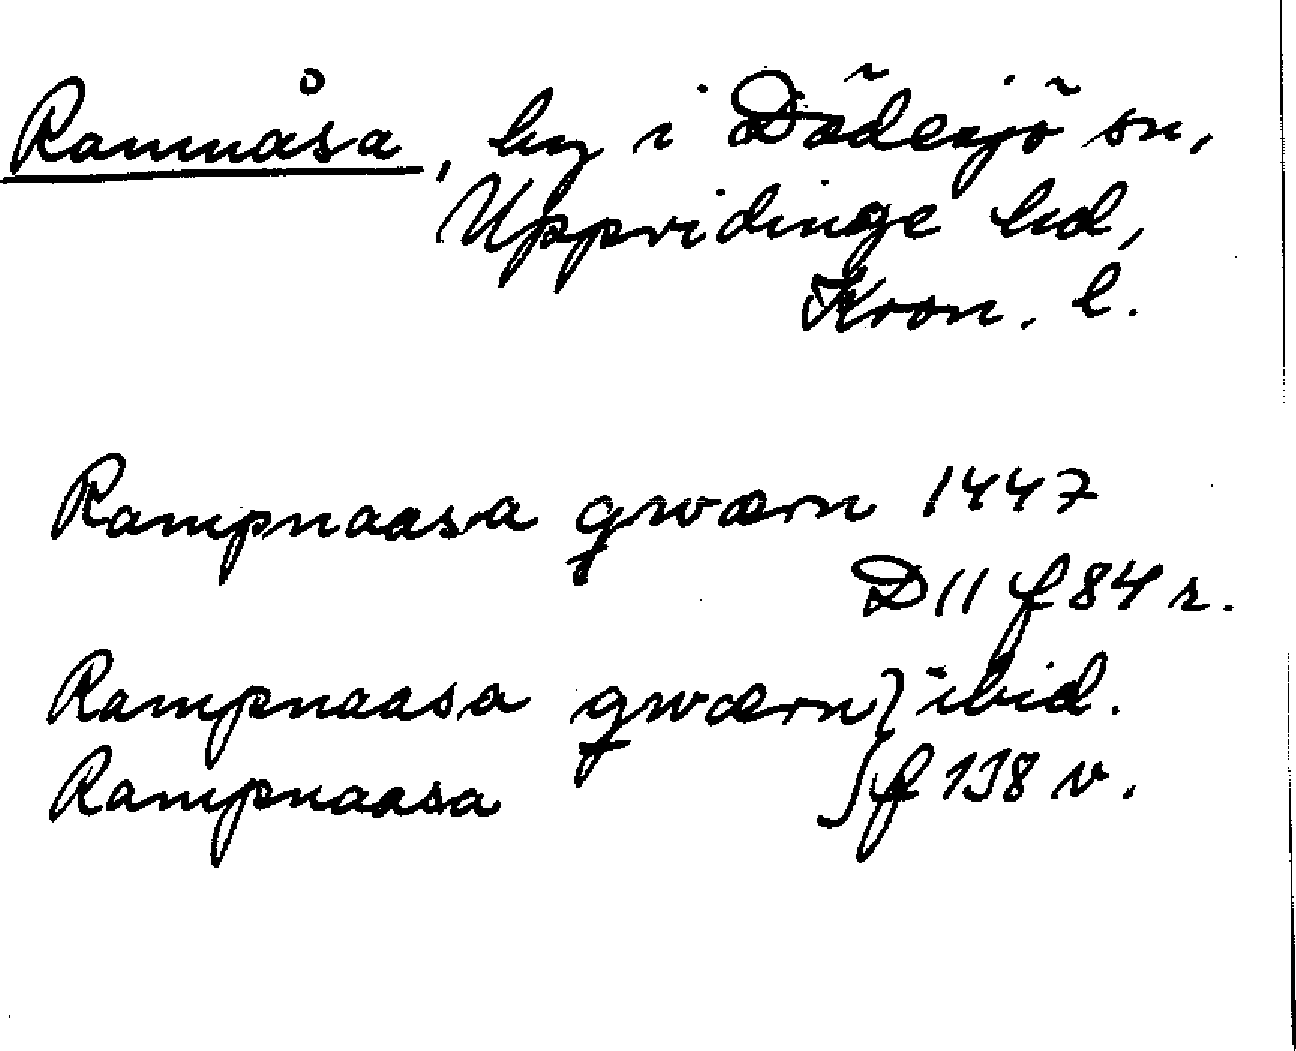 Ramnåsa, by i Dädesjö sn,
Uppvidinge hd,
Kron. l.
Rampnaasa qwærn 1447
D 11 f 84 r.
Rampnaasa qwærn } ibid.
Rampnaasa } f 138 v.